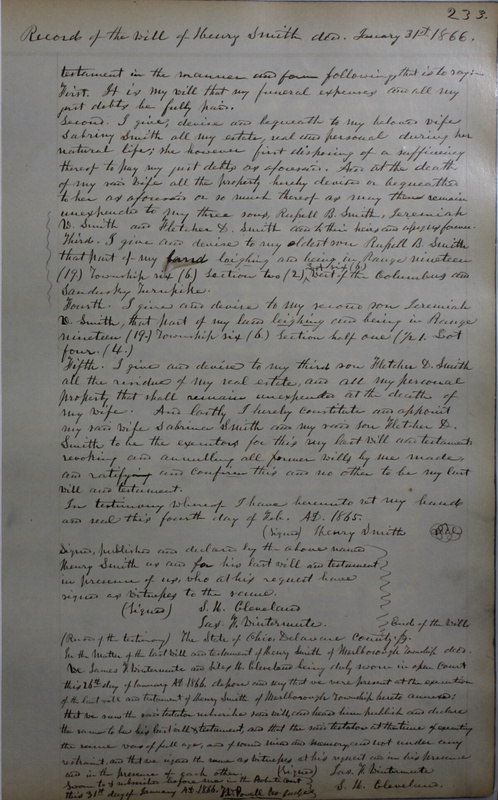 233.
Record of the Will of Henry Smith decd. January 31st 1866.
testament in the manner and form following, that is to say:
First. It is my will that my funeral expenses and all my
just debts be fully paid.
Second. I give, devise and bequeath to my beloved wife
Sabriny Smith all my estate, real and personal during her
natural life; she however first disposing of a sufficiency
thereof to pay my just debts as aforesaid. And at the death
of my said wife all the property hereby devised or bequeathed
to her as aforesaid or so much thereof as may then remain
unexpended to my three sons, Russell B. Smith, Jeremiah
D. Smith and Fletcher D. Smith and to their heirs and assigns forever.
Third. I give and devise to my oldest son Russell B. Smith
that part of my land leighing and being in Range nineteen
(19.) Township six (6) Section two (2) Lot six (6) East of the Columbus and
Sandusky Turnpike.
Fourth. I give and devise to my second son Jeremiah
D. Smith, that part of my land leighing and being in Range
nineteen (19.) Township six (6.) Section half one (1/2 1. Lot
four. (4.)
Fifth. I give and devise to my third son Fletcher D. Smith
all the residue of my real estate, and all my personal
property that shall remain unexpended at the death of
my wife. And lastly I hereby constitute and appoint
my said wife Sabrina Smith and my said son Fletcher D.
Smith to be the executors for this my last will and testament
revoking and annulling all former wills by me made,
and ratifying and confirm this and no other to be my last
will and testament.
In testimony whereof I have hereunto set my hand
and seal this fourth day of Feb. AD. 1865.
(Signed) Henry Smith Seal
Signed, published and declared by the above named
Henry Smith as and for his last will and testament
in presence of us, who at his request have
signed as witnesses to the same.
(Signed) S. H. Cleveland
Jas. F. Wintermute. End of the Will
(Record of the testimony) The State of Ohio, Delaware County, SS.
In the Matter of the last Will and testament of Henry Smith of Marlborough Township decd.
We James F. Wintermute and Silas H. Cleveland being duly sworn in open Court
this 26th day of January AD 1866. depose and say that we were present at the execution
of the last will and testament of Henry Smith of Marlborough Township hereto annexed;
that we saw the said testator subscribe said will, and heard him publish and declare
the same to be his last will & testament, and that the said testator at the time of executing
the same was of full age, and of sound mind and memory, and not under any
restraint, and that we signed the same as witnesses at his request and in his presence
and in the presence of each other. (Signed) Jas. F. Wintermute
Sworn to & subscribed before me in the Probate Court S. H. Cleveland.
this 31st day of January AD. 1866. Powell